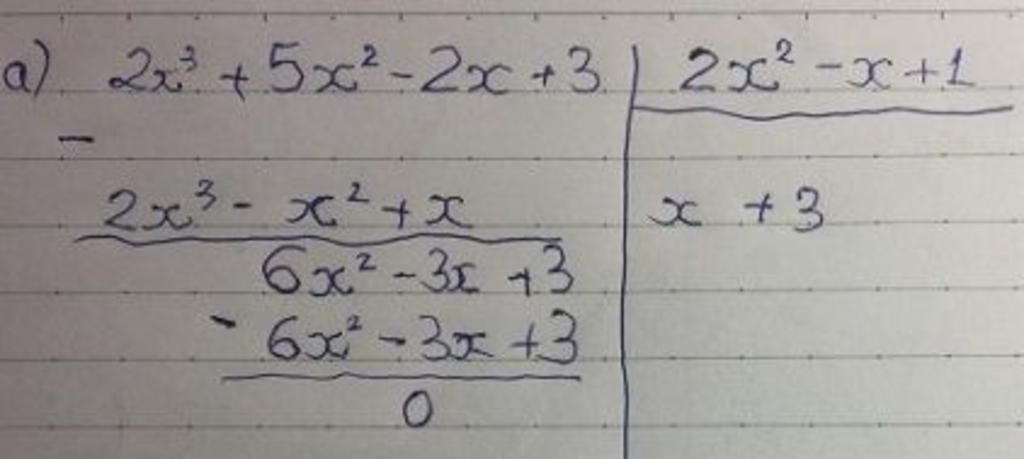 a) 2x³ + 5x² - 2x + 3 | 2x² - x + 1
-
2x³ - x² + x | x + 3
6x² - 3x + 3
- 6x² - 3x + 3
0